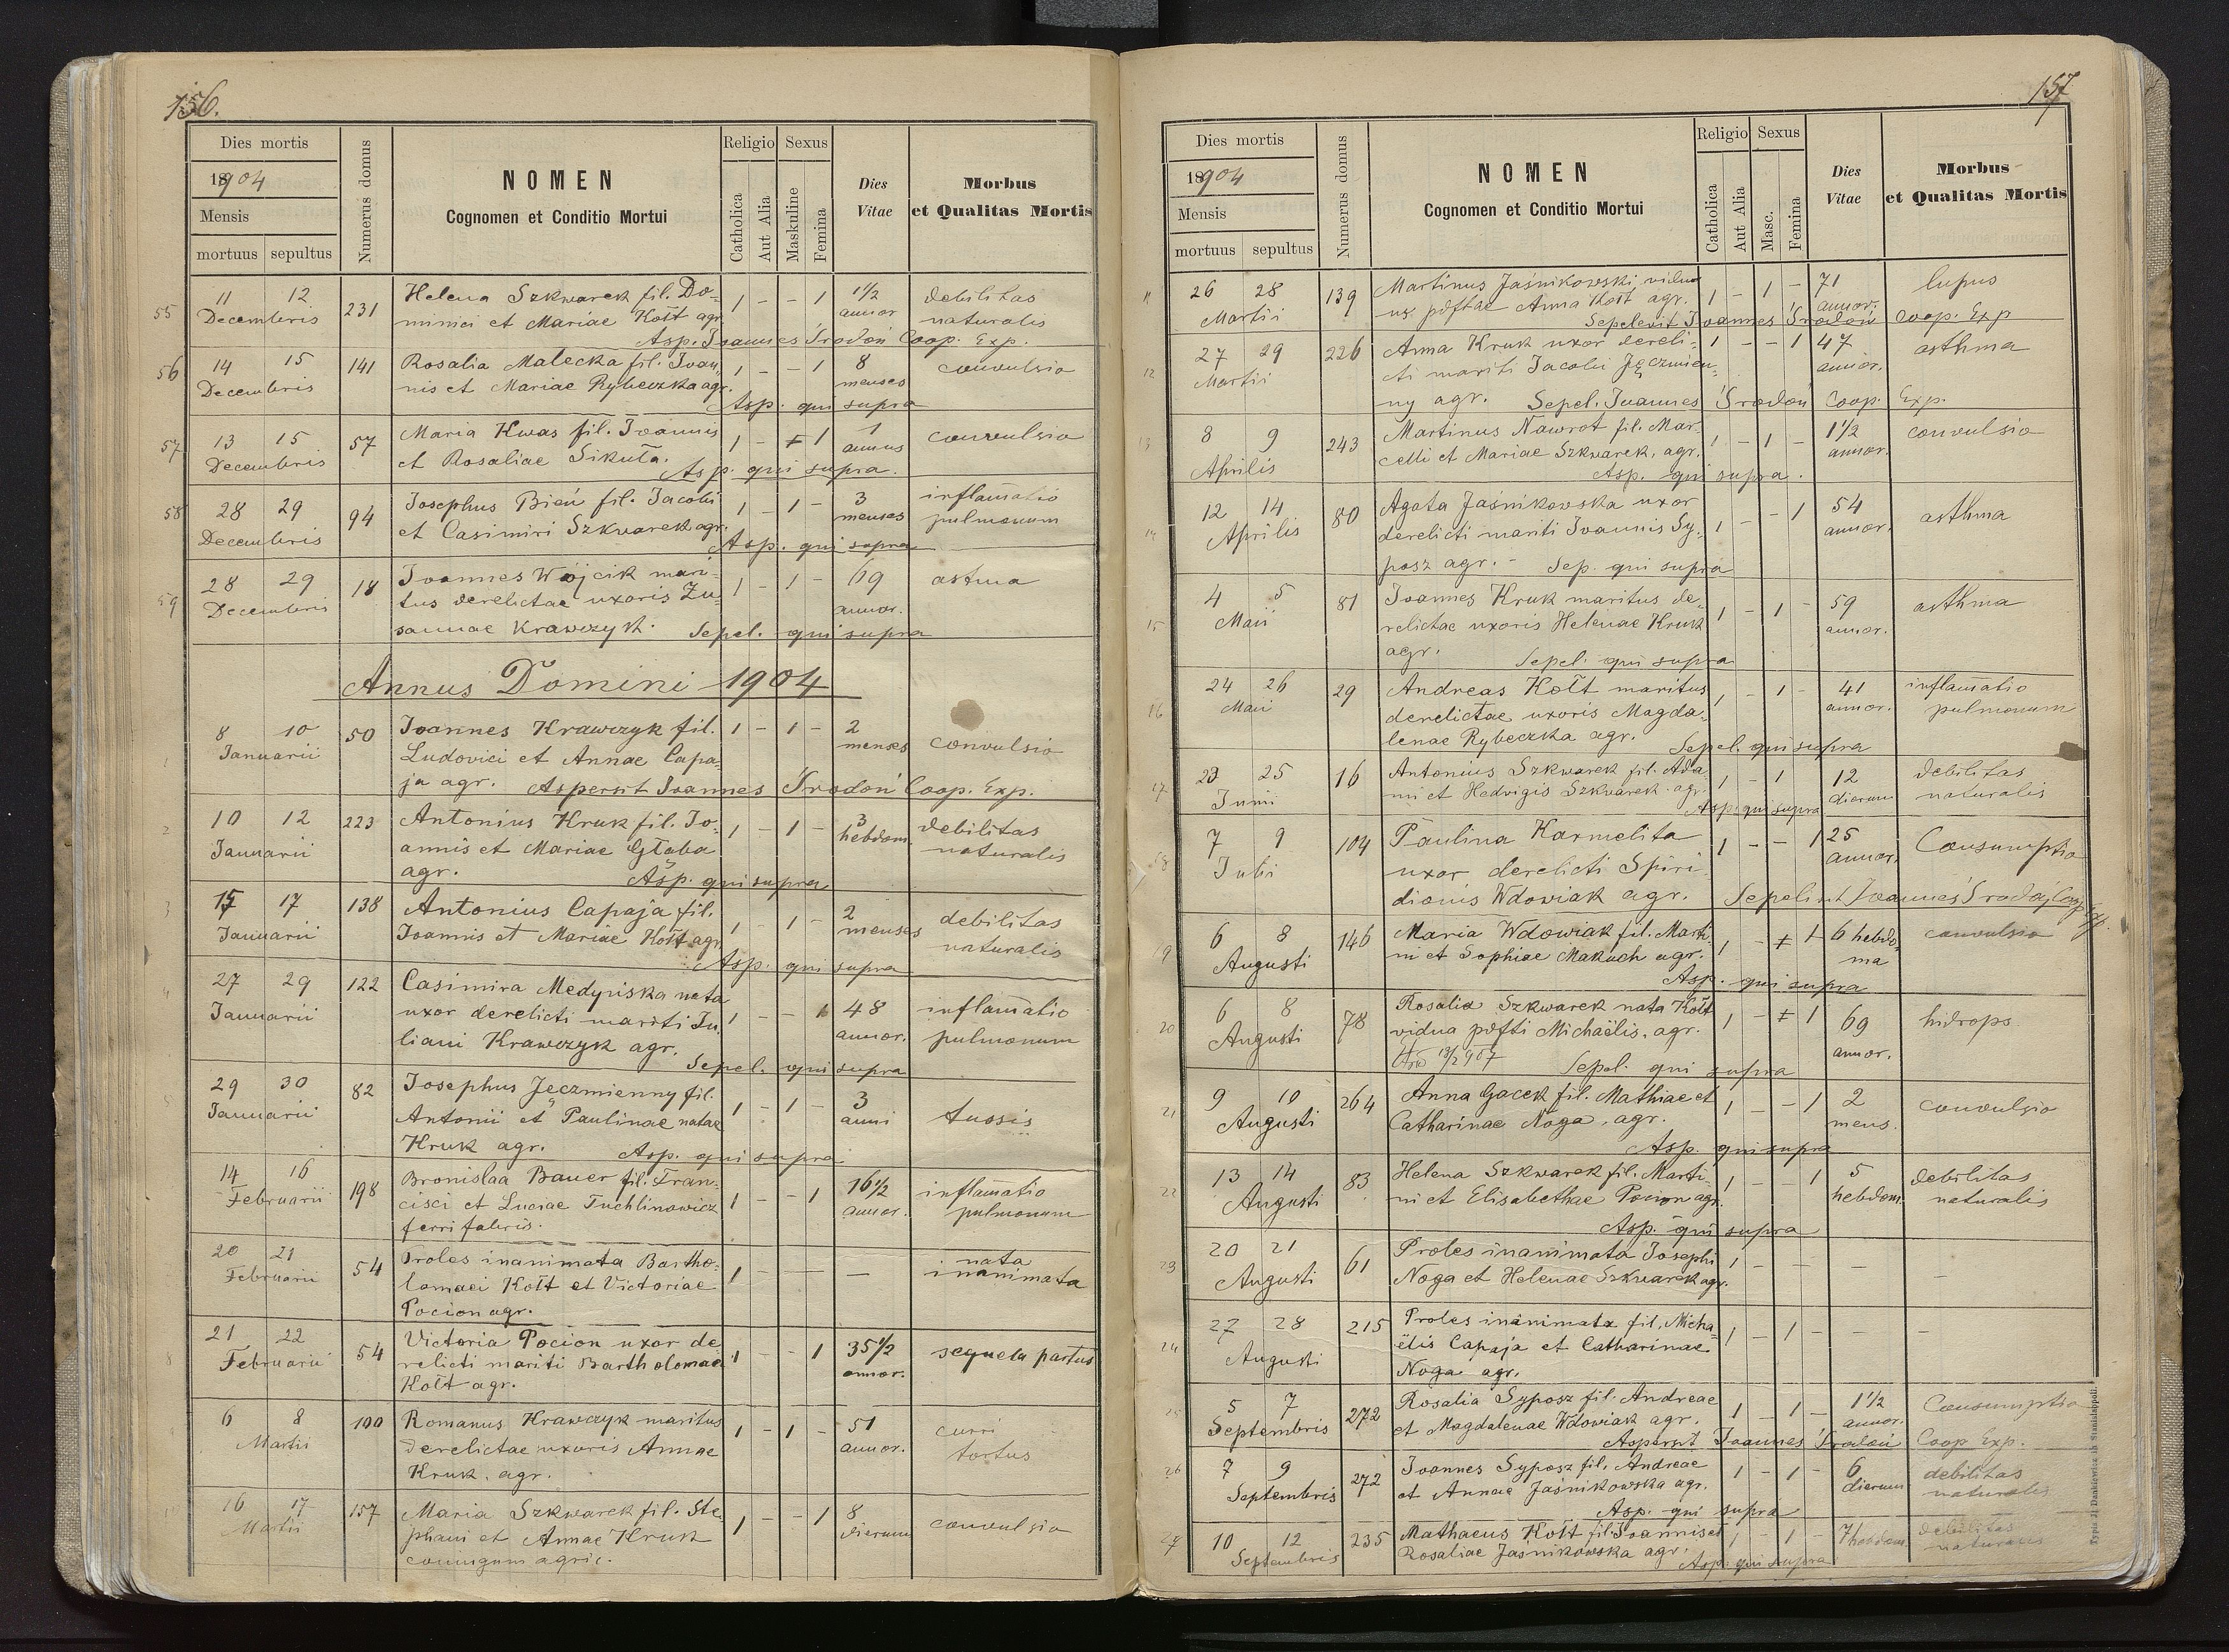 156.
Dies mortis
1904
Mensis
mortuus sepultus
Numerus domus
NOMEN
Cognomen et Conditio Mortui
Religio Sexus
Catholica
Aut Alia
Maskuline
Femina
Dies
Vitae
Morbus
et Qualitas Mortis
55 11 12 231 Helena Szkwarek fil. Do- 1 - - 1 1½ debilitas
Decembris minici et Mariae Kołt agr. annor naturalis
Asp. Joannes Środoń Coop. Exp.
56 14 15 141 Rosalia Malecka fil. Joan- 1 - - 1 8 convulsio
Decembris nis et Mariae Rybeczka agr. menses
Asp. qui supra
57 13 15 57 Maria Kwas fil. Joannis 1 - 1 1 convulsio
Decembris et Rosaliae Sikuta. annus
Asp. qui supra.
58 28 29 94 Josephus Bień fil. Jacobi 1 - 1 - 3 inflam̄atio
Decembris et Casimiri Szkwarek agr. menses pulmonum
Asp. qui supra
59 28 29 18 Joannes Wójcik mari- 1 - 1 - 69 astma
Decembris tus derelictae uxoris Zu- annor.
sannae Krawczyk. Sepel. qui supra
Annus Domini 1904
1 8 10 50 Joannes Krawczyk fil. 1 - 1 - 2
Januarii Ludovici et Annae Capa- menses convulsio
ja agr. Aspersit Joannes Środoń Coop. Exp.
2 10 12 223 Antonius Kruk fil. Jo- 1 - 1 - 3 debilitas
Januarii annis et Mariae Głaba hebdom. naturalis
agr. Asp. qui supra
3 15 17 138 Antonius Capaja fil. 1 - 1 - 2 debilitas
Januarii Joannis et Mariae Kołt agr. menses naturalis
Asp. qui supra
4 27 29 122 Casimira Medyńska nata
Januarii uxor derelicti mariti Ju- 1 - - 1 48 inflam̄atio
liani Krawczyk agr. annor. pulmonum
Sepel. qui supra
5 29 30 82 Josephus Jęczmienny fil.
Januarii Antonii et Paulinae natae 1 - 1 - 3 anni tussis
Kruk agr. Asp. qui supra
14 16 198 Bronislaa Bauer fil. Fran- 1 - - 1 16½ inflam̄atio
Februarii cisci et Luciae Tuchlinowicz annor. pulmonum
ferri fabris.
20 21 54 Proles inanimata Bartho- 1 - - - nata
Februarii lomaei Kołt et Victoriae inanimata
Pocion agr.
8 21 22 54 Victoria Pocion uxor de 1 - - 1 35½ sequela partus
Februarii relicti mariti Bartholomaei annor.
Kołt agr.
6 8 100 Romanus Krawczyk maritus 1 - 1 - 51 curri
Martii derelictae uxoris Annae annor. tortus
Kruk. agr.
16 17 157 Maria Szkwarek fil. Ste- 1 - - 1 8 convulsio
Martii phani et Annae Kruk dierum
conjugum agric.
157
Dies mortis
1904
Mensis
mortuus sepultus
Numerus domus
NOMEN
Cognomen et Conditio Mortui
Religio Sexus
Catholica
Aut Alia
Masc.
Femina
Dies
Vitae
Morbus
et Qualitas Mortis
11 26 28 139 Martinus Jaśnikowski vidu- 1 - 1 - 71 lupus
Martii us pdftae Anna Kołt agr. annor.
Sepelevit Joannes Środoń Coop. Exp
12 27 29 226 Anna Kruk uxor dereli- 1 - - 1 47 asthma
Martii cti mariti Jacobi Jęczmien- annor.
ny agr. Sepel. Joannes Środoń Coop. Exp.
13 8 9 243 Martinus Nawrot fil. Mar- 1 - 1 - 1½ convulsio
Aprilis celli et Mariae Szkwarek, agr. annor.
Asp. qui supra.
14 12 14 80 Agata Jaśnikowska uxor 1 - - 1 54 asthma
Aprilis derelicti mariti Joannis Sy- annor.
posz agr. - Sep. qui supra
15 4 5 81 Joannes Kruk maritus de- 1 - 1 - 59 asthma
Maii relictae uxoris Helenae Kruk annor.
agr. Sepel. qui supra
16 24 26 29 Andreas Kołt maritus 1 - 1 - 41 inflam̄atio
Maii derelictae uxoris Magda- annor. pulmonum
lenae Rybeczka agr. Sepel. qui supra
17 23 25 16 Antonius Szkwarek fil. Ada- 1 - 1 12 debilitas
Junii mi et Hedvigis Szkwarek. agr. dierum naturalis
Asp. qui supra
18 7 9 104 Paulina Karmelita 1 - - 1 25 Consumptio
Julii uxor derelicti Spiri- annor.
dionis Wdowiak agr. Sepelivit Joannes Środoń Coop. Exp.
19 6 8 146 Maria Wdowiak fil. Marti- 1 - 1 6 hebdo- convulsio
Augusti ni et Sophiae Makuch agr. ma
Asp. qui supra
20 6 8 78 Rosalia Szkwarek nata Kołt 1 - 1 69 hidrops
Augusti vidua pdfti Michaëlis, agr. annor.
13/2 907 Sepel. qui supra
21 9 10 264 Anna Gacek fil. Mathiae et 1 - - 1 2 convulsio
Augusti Catharinae Noga, agr. mens.
Asp. qui supra
22 13 14 83 Helena Szkwarek fil. Marti- 1 - - 1 5 debilitas
Augusti ni et Elisabethae Pocion agr. hebdom. naturalis
Asp. qui supra
23 20 21 61 Proles inanimata Josephi 1 - - - - -
Augusti Noga et Helenae Szkwarek agr.
24 27 28 215 Proles inanimata fil. Micha- 1 - 1 - - -
Augusti ëlis Capaja et Catharinae
Noga agr.
25 5 7 272 Rosalia Syposz fil. Andreae 1 - 1 - 1½ Consumptio
Septembris et Magdalenae Wdowiak agr. annor.
Aspersit Joannes Środoń Coop Exp.
26 7 9 272 Joannes Syposz fil. Andreae 1 - 1 - 6 debilitas
Septembris et Annae Jaśnikowska agr. dierum naturalis
Asp. qui supra
27 10 12 235 Mathaeus Kołt fil. Joannis et 1 - 1 - 7 hebdom. debilitas
Septembris Rosaliae Jaśnikowska agr. naturalis
Asp. qui supra
Typis J. Dankiewicz in Stanislopoli.